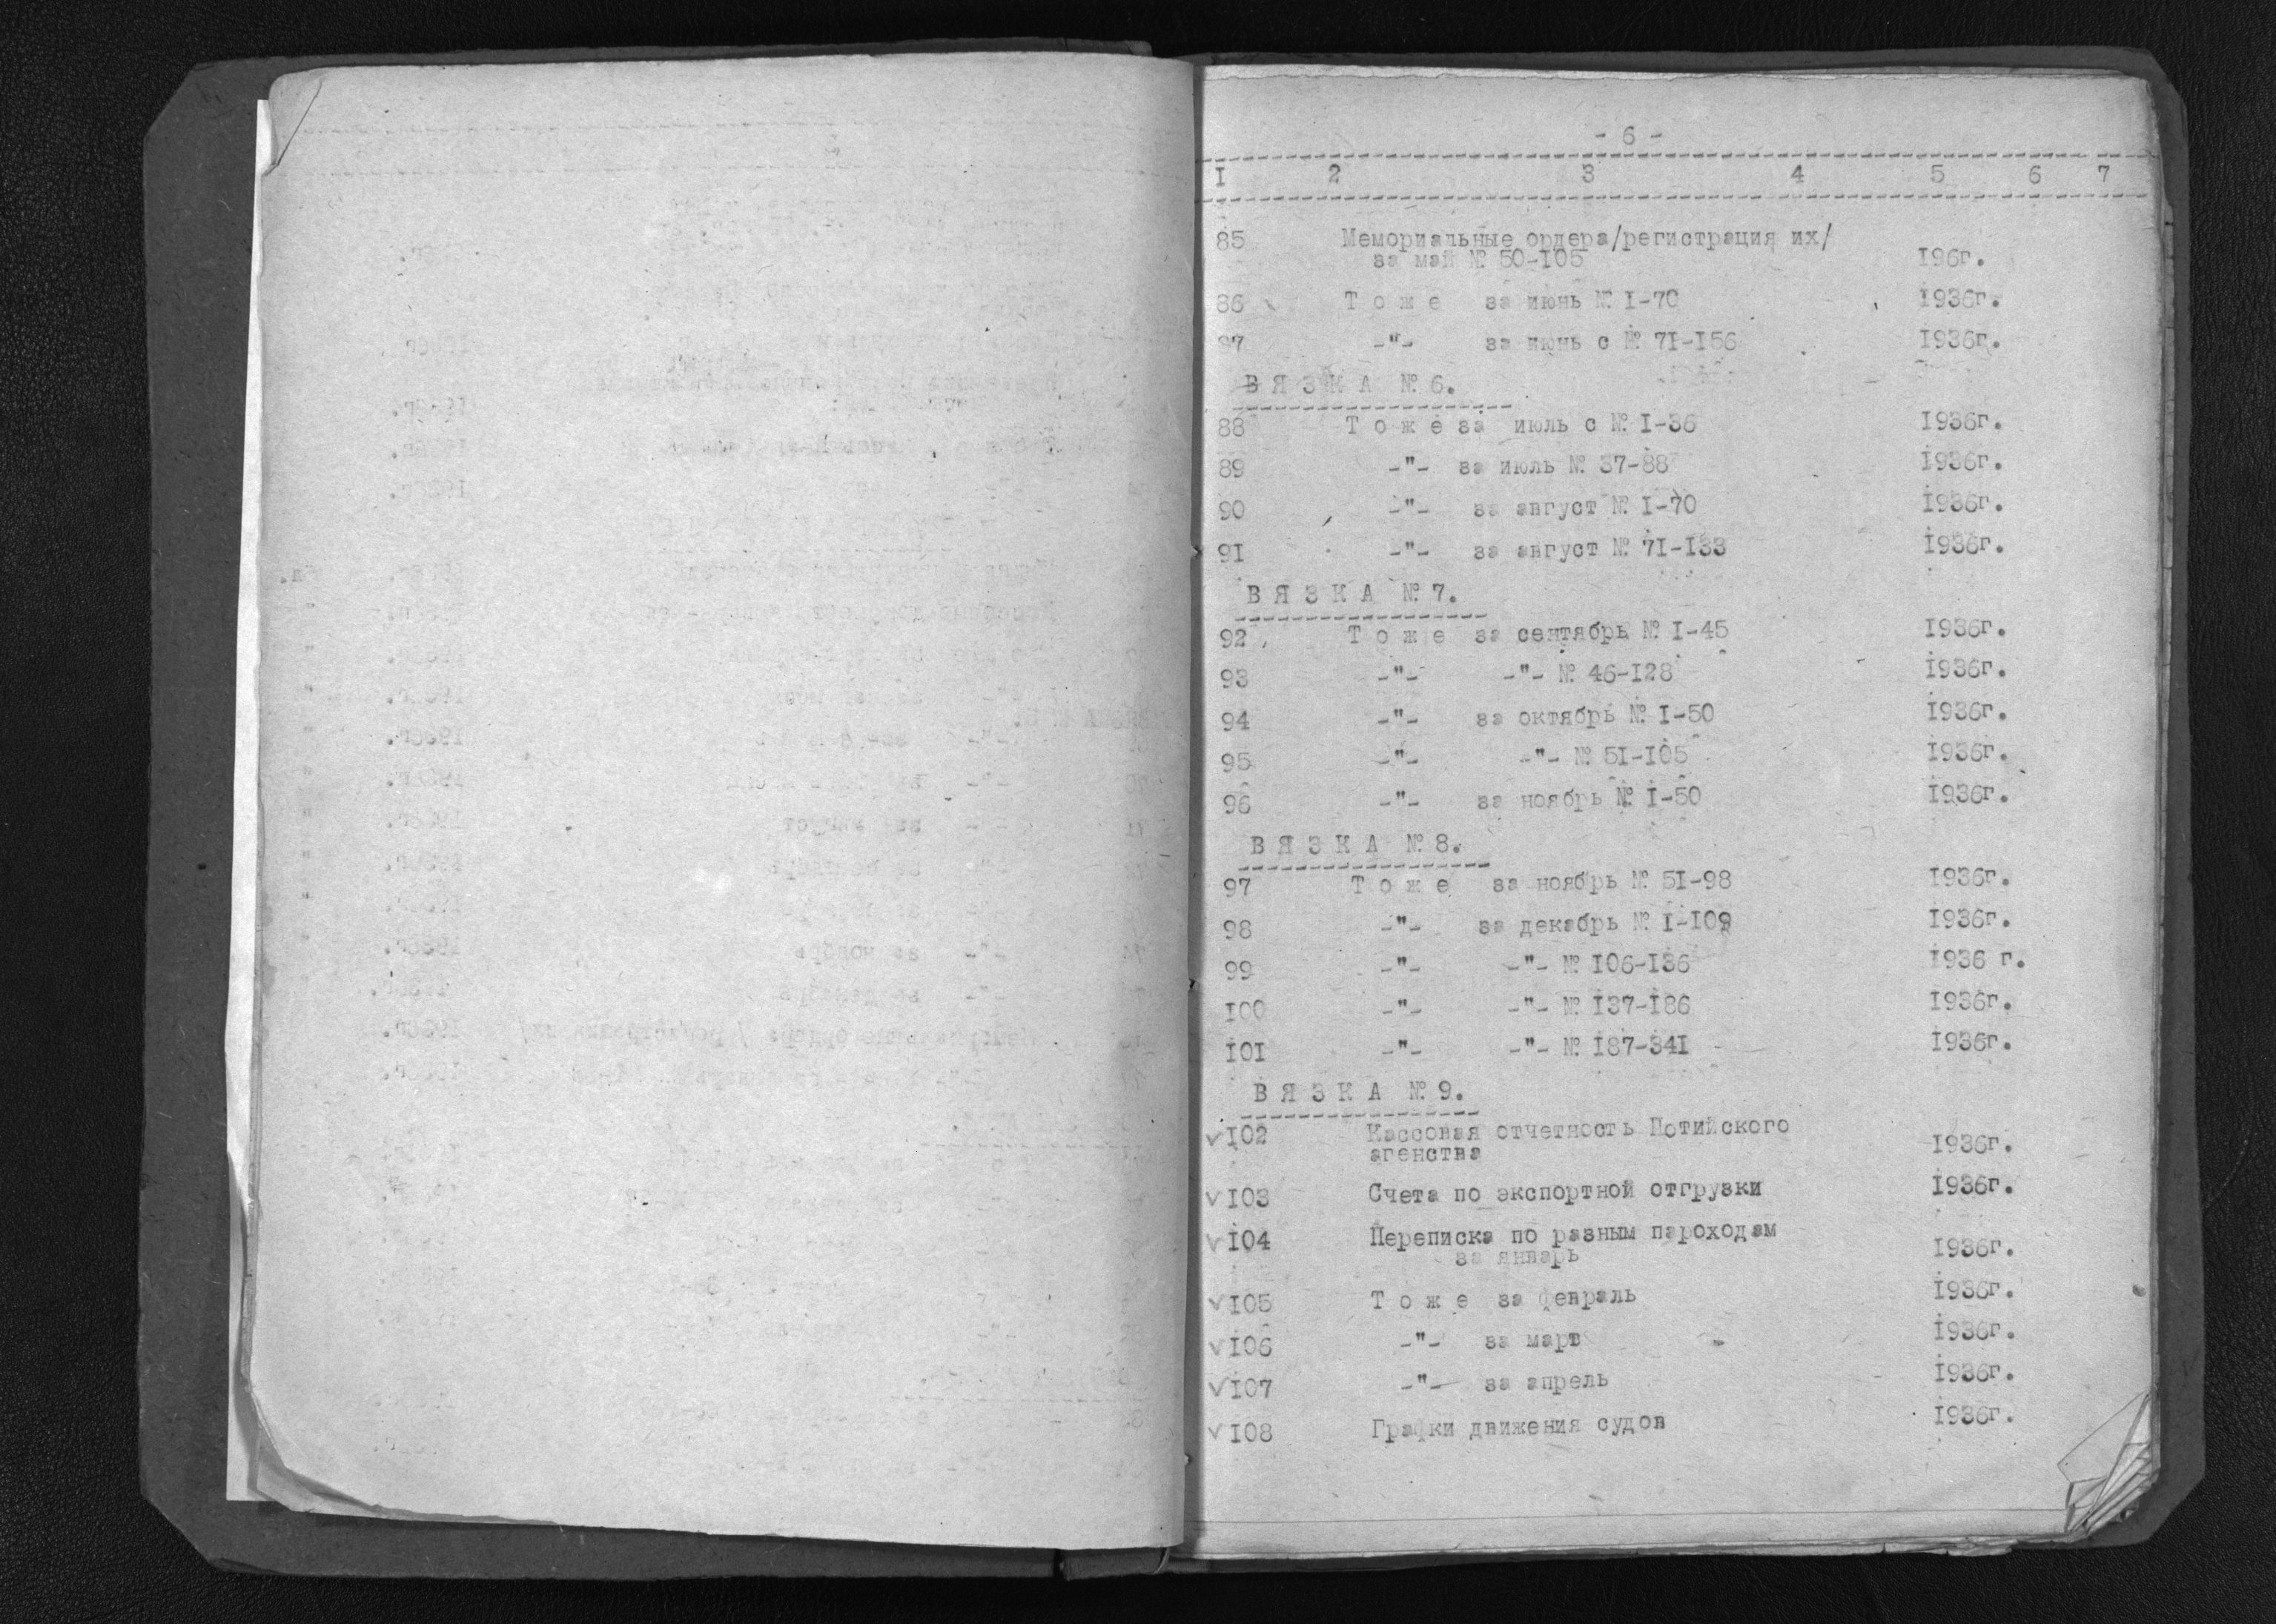 - 6 -
I 2 3 4 5 6 7
85 Мемориальные ордера/регистрация их/
за май № 50-I05 I96г.
86 Т о ж е за июнь № I-70 I936г.
87 -"- за июнь с № 7I-I56 I936г.
В Я З К А № 6.
88 Т о ж е за июль с № I-36 I936г.
89 -"- за июль № 37-88 I936г.
90 -"- за август № I-70 I936г.
9I -"- за август № 7I-I33 I936г.
В Я З К А № 7.
92 Т о ж е за сентябрь № I-45 I936г.
93 -"- -"- № 46-I28 I936г.
94 -"- за октябрь № I-50 I936г.
95 -"- -"- № 5I-I05 I936г.
96 -"- за ноябрь № I-50 I936г.
В Я З К А № 8.
97 Т о ж е за ноябрь № 5I-98 I936г.
98 -"- за декабрь № I-I09 I936г.
99 -"- -"- № I06-I36 I936 г.
I00 -"- -"- № I37-I86 I936г.
I0I -"- -"- № I87-34I I936г.
В Я З К А № 9.
√I02 Кассовая отчетность Потийского
агенства I936г.
√I03 Счета по экспортной отгрузки I936г.
√I04 Переписка по разным пароходам
за январь I936г.
√I05 Т о ж е за февраль I936г.
√I06 -"- за март I936г.
√I07 -"- за апрель I936г.
√I08 Графки движения судов I936г.